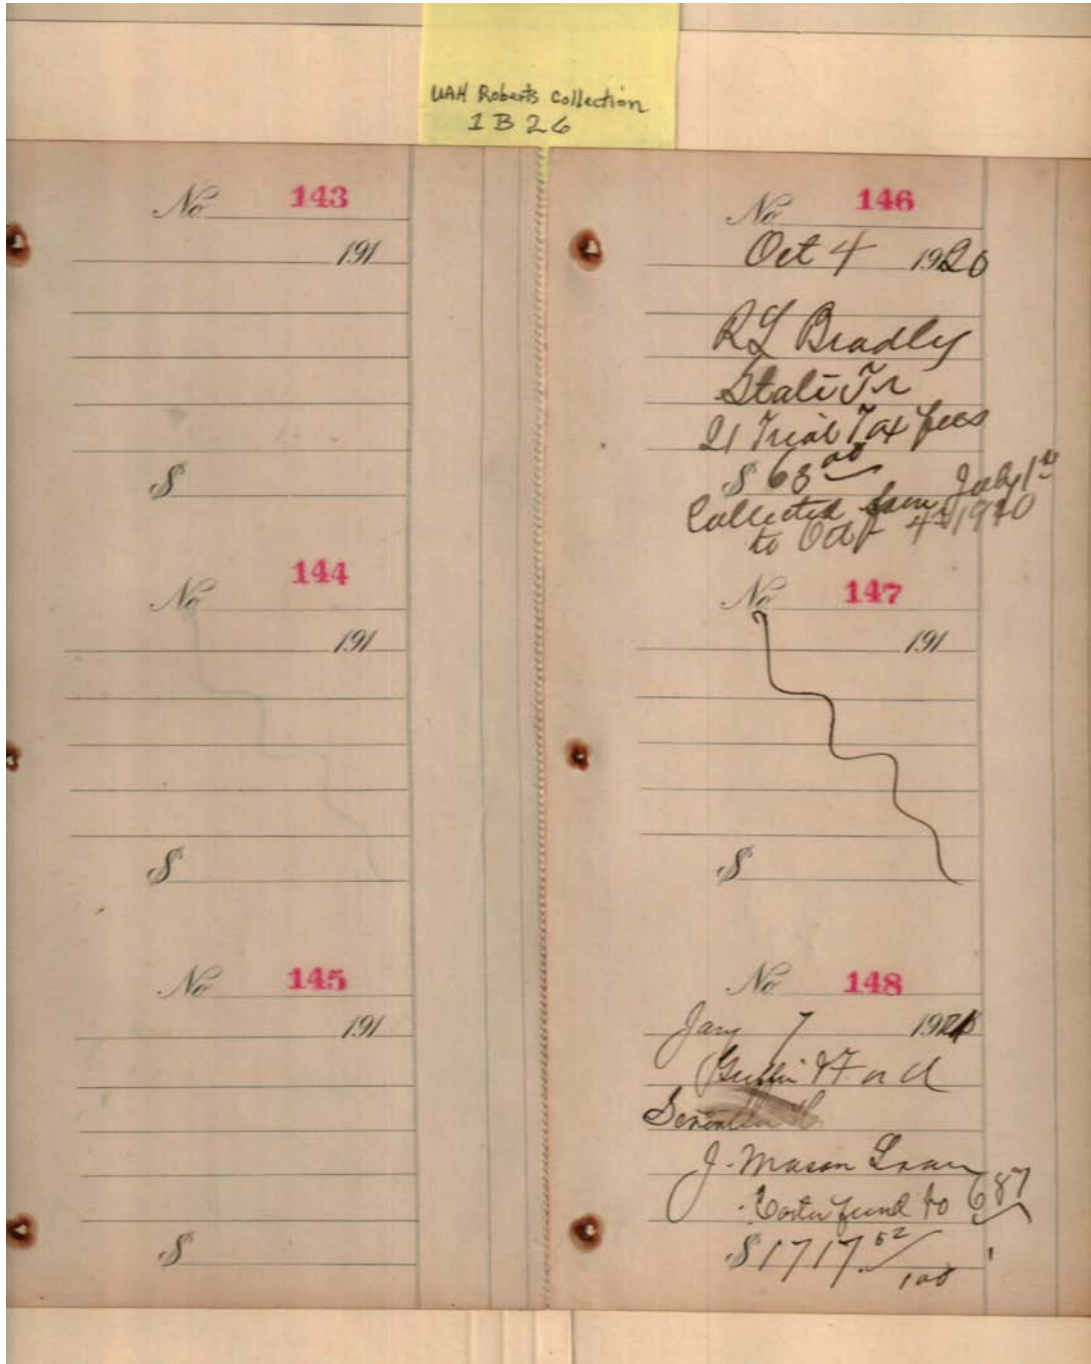 UAH Roberts Collection
1B26
No 143
191
$
No 144
191
$
No 145
191
$
No 146
Oct 4 1920
RL Bradley
State Tr
21 Trial Tax fees
$ 63 00
Collected from July 1st
to Oct 4th 1920
No 147
191
$
No 148
Jany 7 192
Griffin
J. Mason
fund No 687
$ 1717 52/100